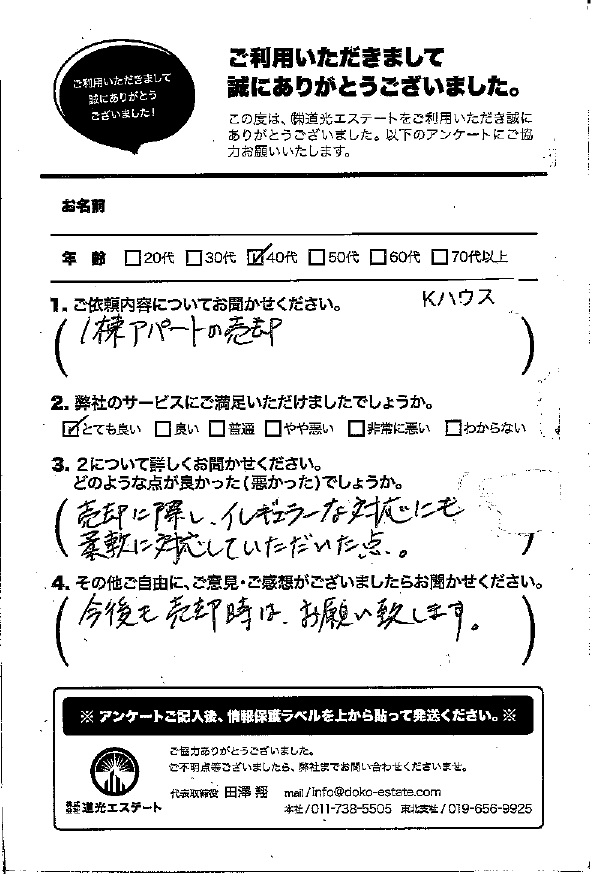 ご利用いただきまして
誠にありがとう
ございました!
ご利用いただきまして
誠にありがとうございました。
この度は、㈱道光エステートをご利用いただき誠に
ありがとうございました。以下のアンケートにご協
力お願いいたします。
お名前
年 齢 □20代 □30代 ☑40代 □50代 □60代 □70代以上
1. ご依頼内容についてお聞かせください。
Kハウス
(1棟アパートの売却)
2. 弊社のサービスにご満足いただけましたでしょうか。
☑とても良い □良い □普通 □やや悪い □非常に悪い □わからない
3. 2について詳しくお聞かせください。
どのような点が良かった(悪かった)でしょうか。
(売却に際し、イレギュラーな対応にも
柔軟に対応していただいた点。)
4. その他ご自由に、ご意見・ご感想がございましたらお聞かせください。
(今後も売却時は、お願い致します。)
※ アンケートご記入後、情報保護ラベルを上から貼って発送ください。※
ご協力ありがとうございました。
ご不明点等ございましたら、弊社までお問い合わせくださいませ。
代表取締役 田澤 翔 mail/info@doko-estate.com
株式会社 道光エステート 本社/011-738-5505 東北支社/019-656-9925